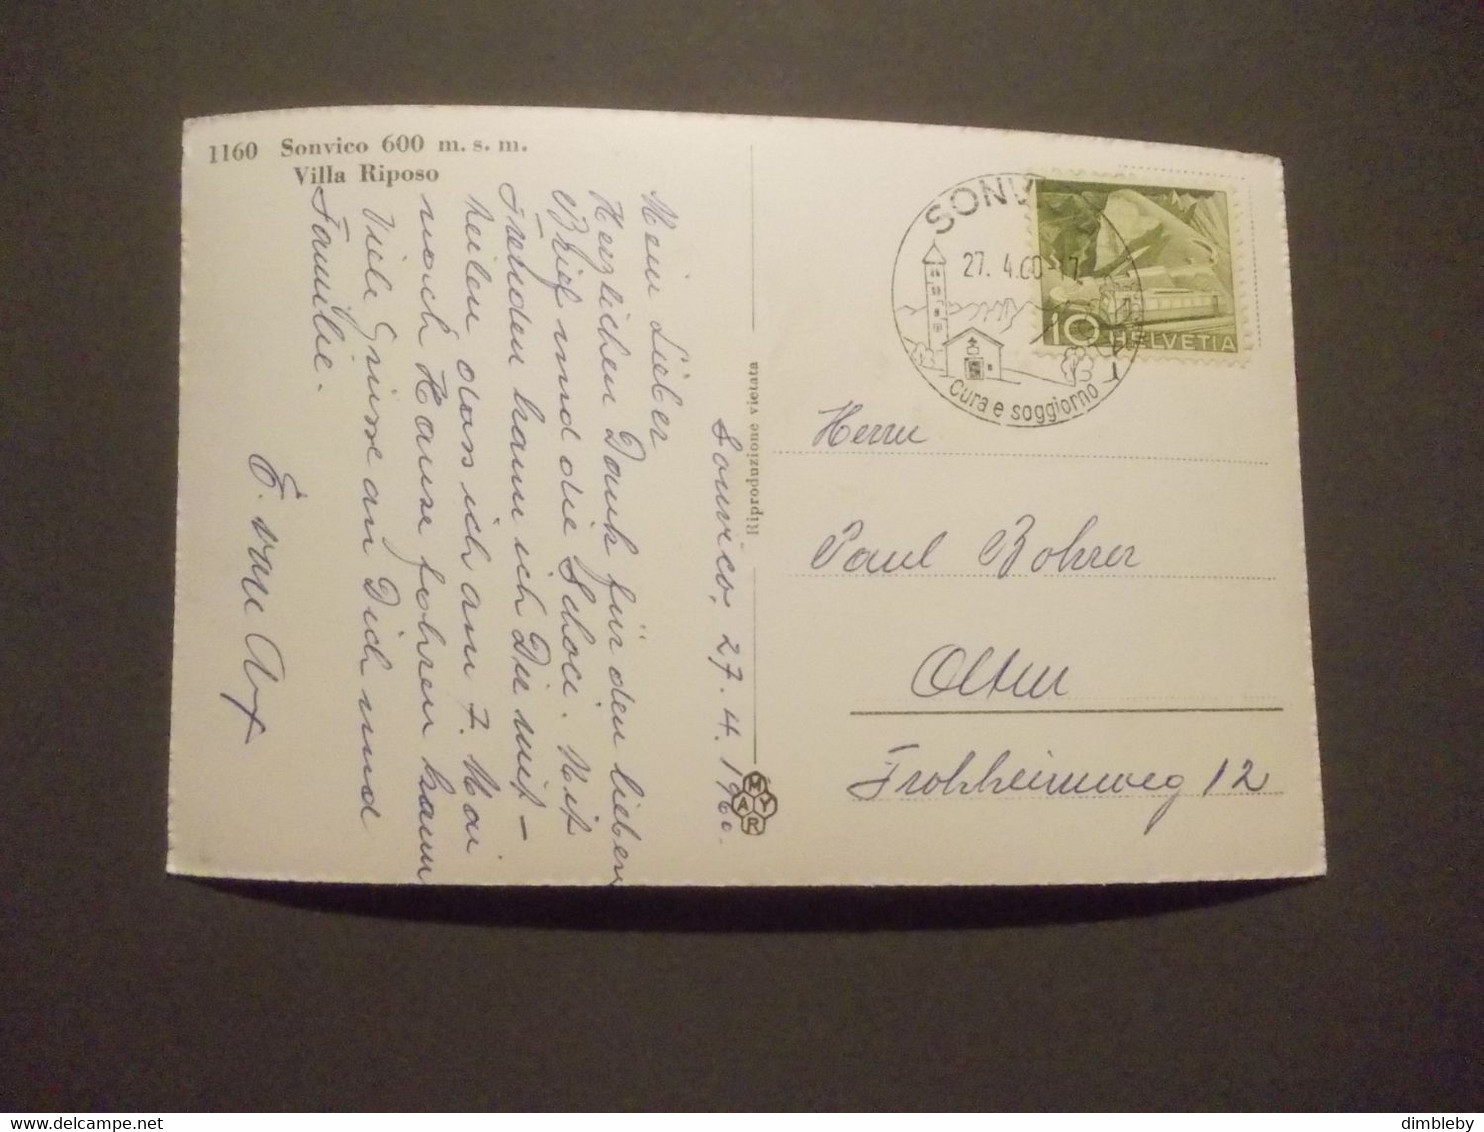 1160 Sonvico 600 m. s. m.
Villa Riposo
Sonvico, 27. 4. 1960.
Mein Lieber
Herzlichen Dank für den lieben
Brief und die Schoci. Mit
Freuden kann ich Dir mit-
teilen dass ich am 7. Mai
nach Hause fahren kann
Viele Grüsse an Dich und
Familie.
E. von Arx
Riproduzione vietata
MYRA
SONV
27. 4.60-17
Cura e soggiorno
10 HELVETIA
Herrn
Paul Bohrer
Olten
Frohheimweg 12
dimbleby